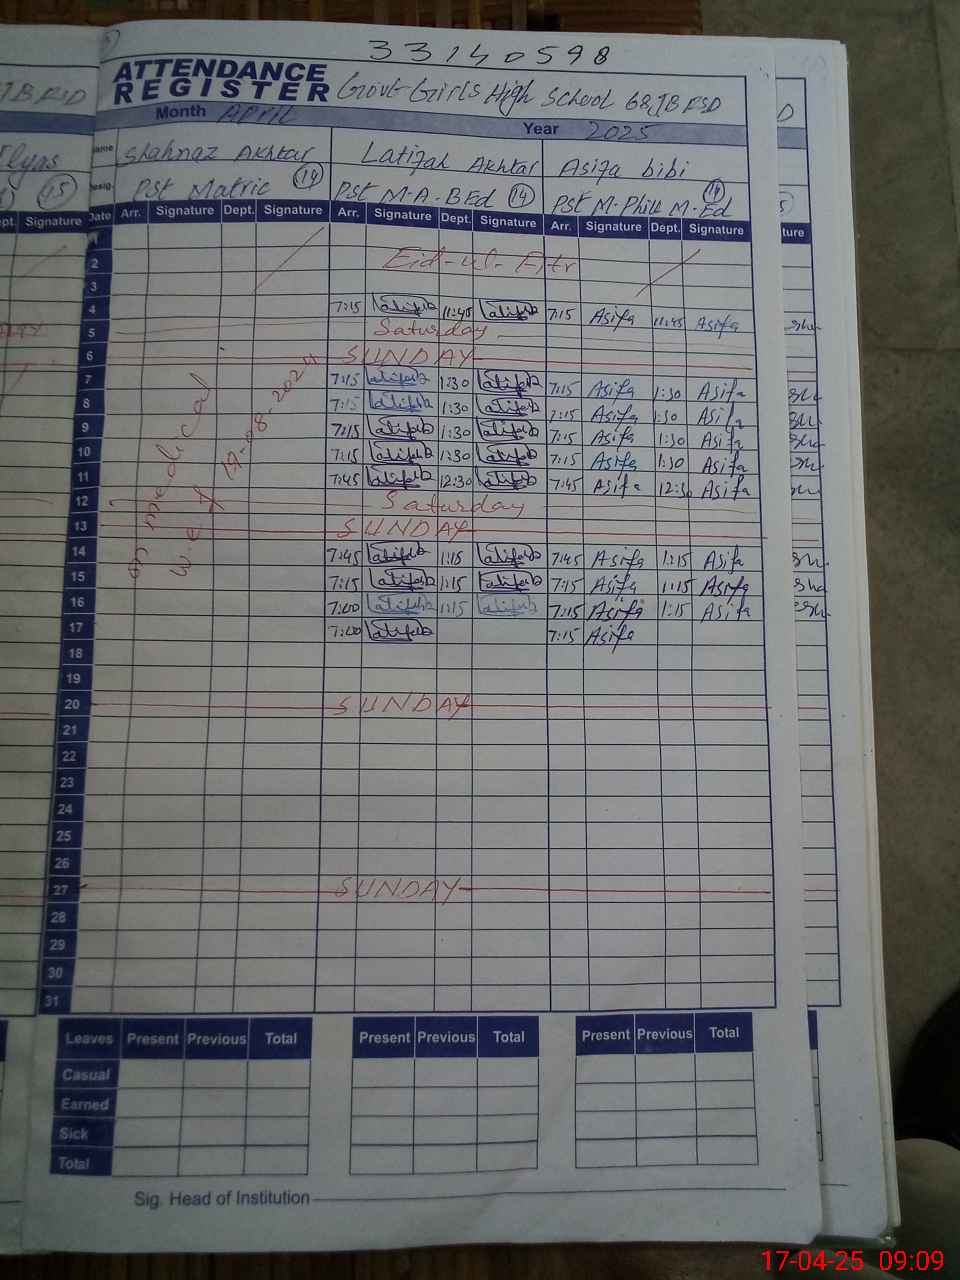 33140598
ATTENDANCE
REGISTER
Govt Girls High School 68 JB FSD
Month APRIL
Year 2025
Name Shahnaz Akhtar Latifah Akhtar Asifa bibi
Desig. PST Matric 14 PST M-A-BEd 14 PST M-Phill M-Ed 14
Date Arr. Signature Dept. Signature Arr. Signature Dept. Signature Arr. Signature Dept. Signature
1
2 Eid-ul-Fitr
3
4 7:15 Latifah 11:45 Latifah 7:15 Asifa 11:45 Asifa
5 Saturday
6 SUNDAY
7 7:15 Latifah 1:30 Latifah 7:15 Asifa 1:30 Asifa
8 7:15 Latifah 1:30 Latifah 7:15 Asifa 1:30 Asifa
9 7:15 Latifah 1:30 Latifah 7:15 Asifa 1:30 Asifa
10 7:15 Latifah 1:30 Latifah 7:15 Asifa 1:30 Asifa
11 7:45 Latifah 12:30 Latifah 7:45 Asifa 12:30 Asifa
12 Saturday
13 SUNDAY
14 7:45 Latifah 1:15 Latifah 7:45 Asifa 1:15 Asifa
15 7:15 Latifah 1:15 Latifah 7:15 Asifa 1:15 Asifa
16 7:00 Latifah 1:15 Latifah 7:15 Asifa 1:15 Asifa
17 7:00 Latifah 7:15 Asifa
18
19
20 SUNDAY
21
22
23
24
25
26
27 SUNDAY
28
29
30
31
on medical
w.e.f 19-08-2024
Leaves Present Previous Total Present Previous Total Present Previous Total
Casual
Earned
Sick
Total
Sig. Head of Institution
17-04-25 09:09